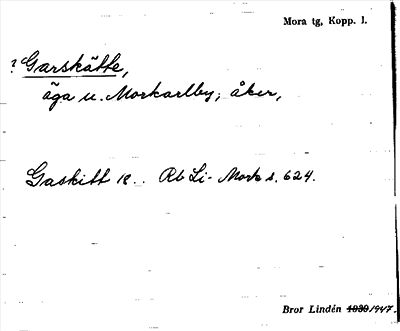 Mora tg, Kopp. l.
? Garskätte,
äga u. Morkarlby; åker,
Gaskitt 18.. Rb Li- Mork s. 624.
Bror Lindén 1939/1947.